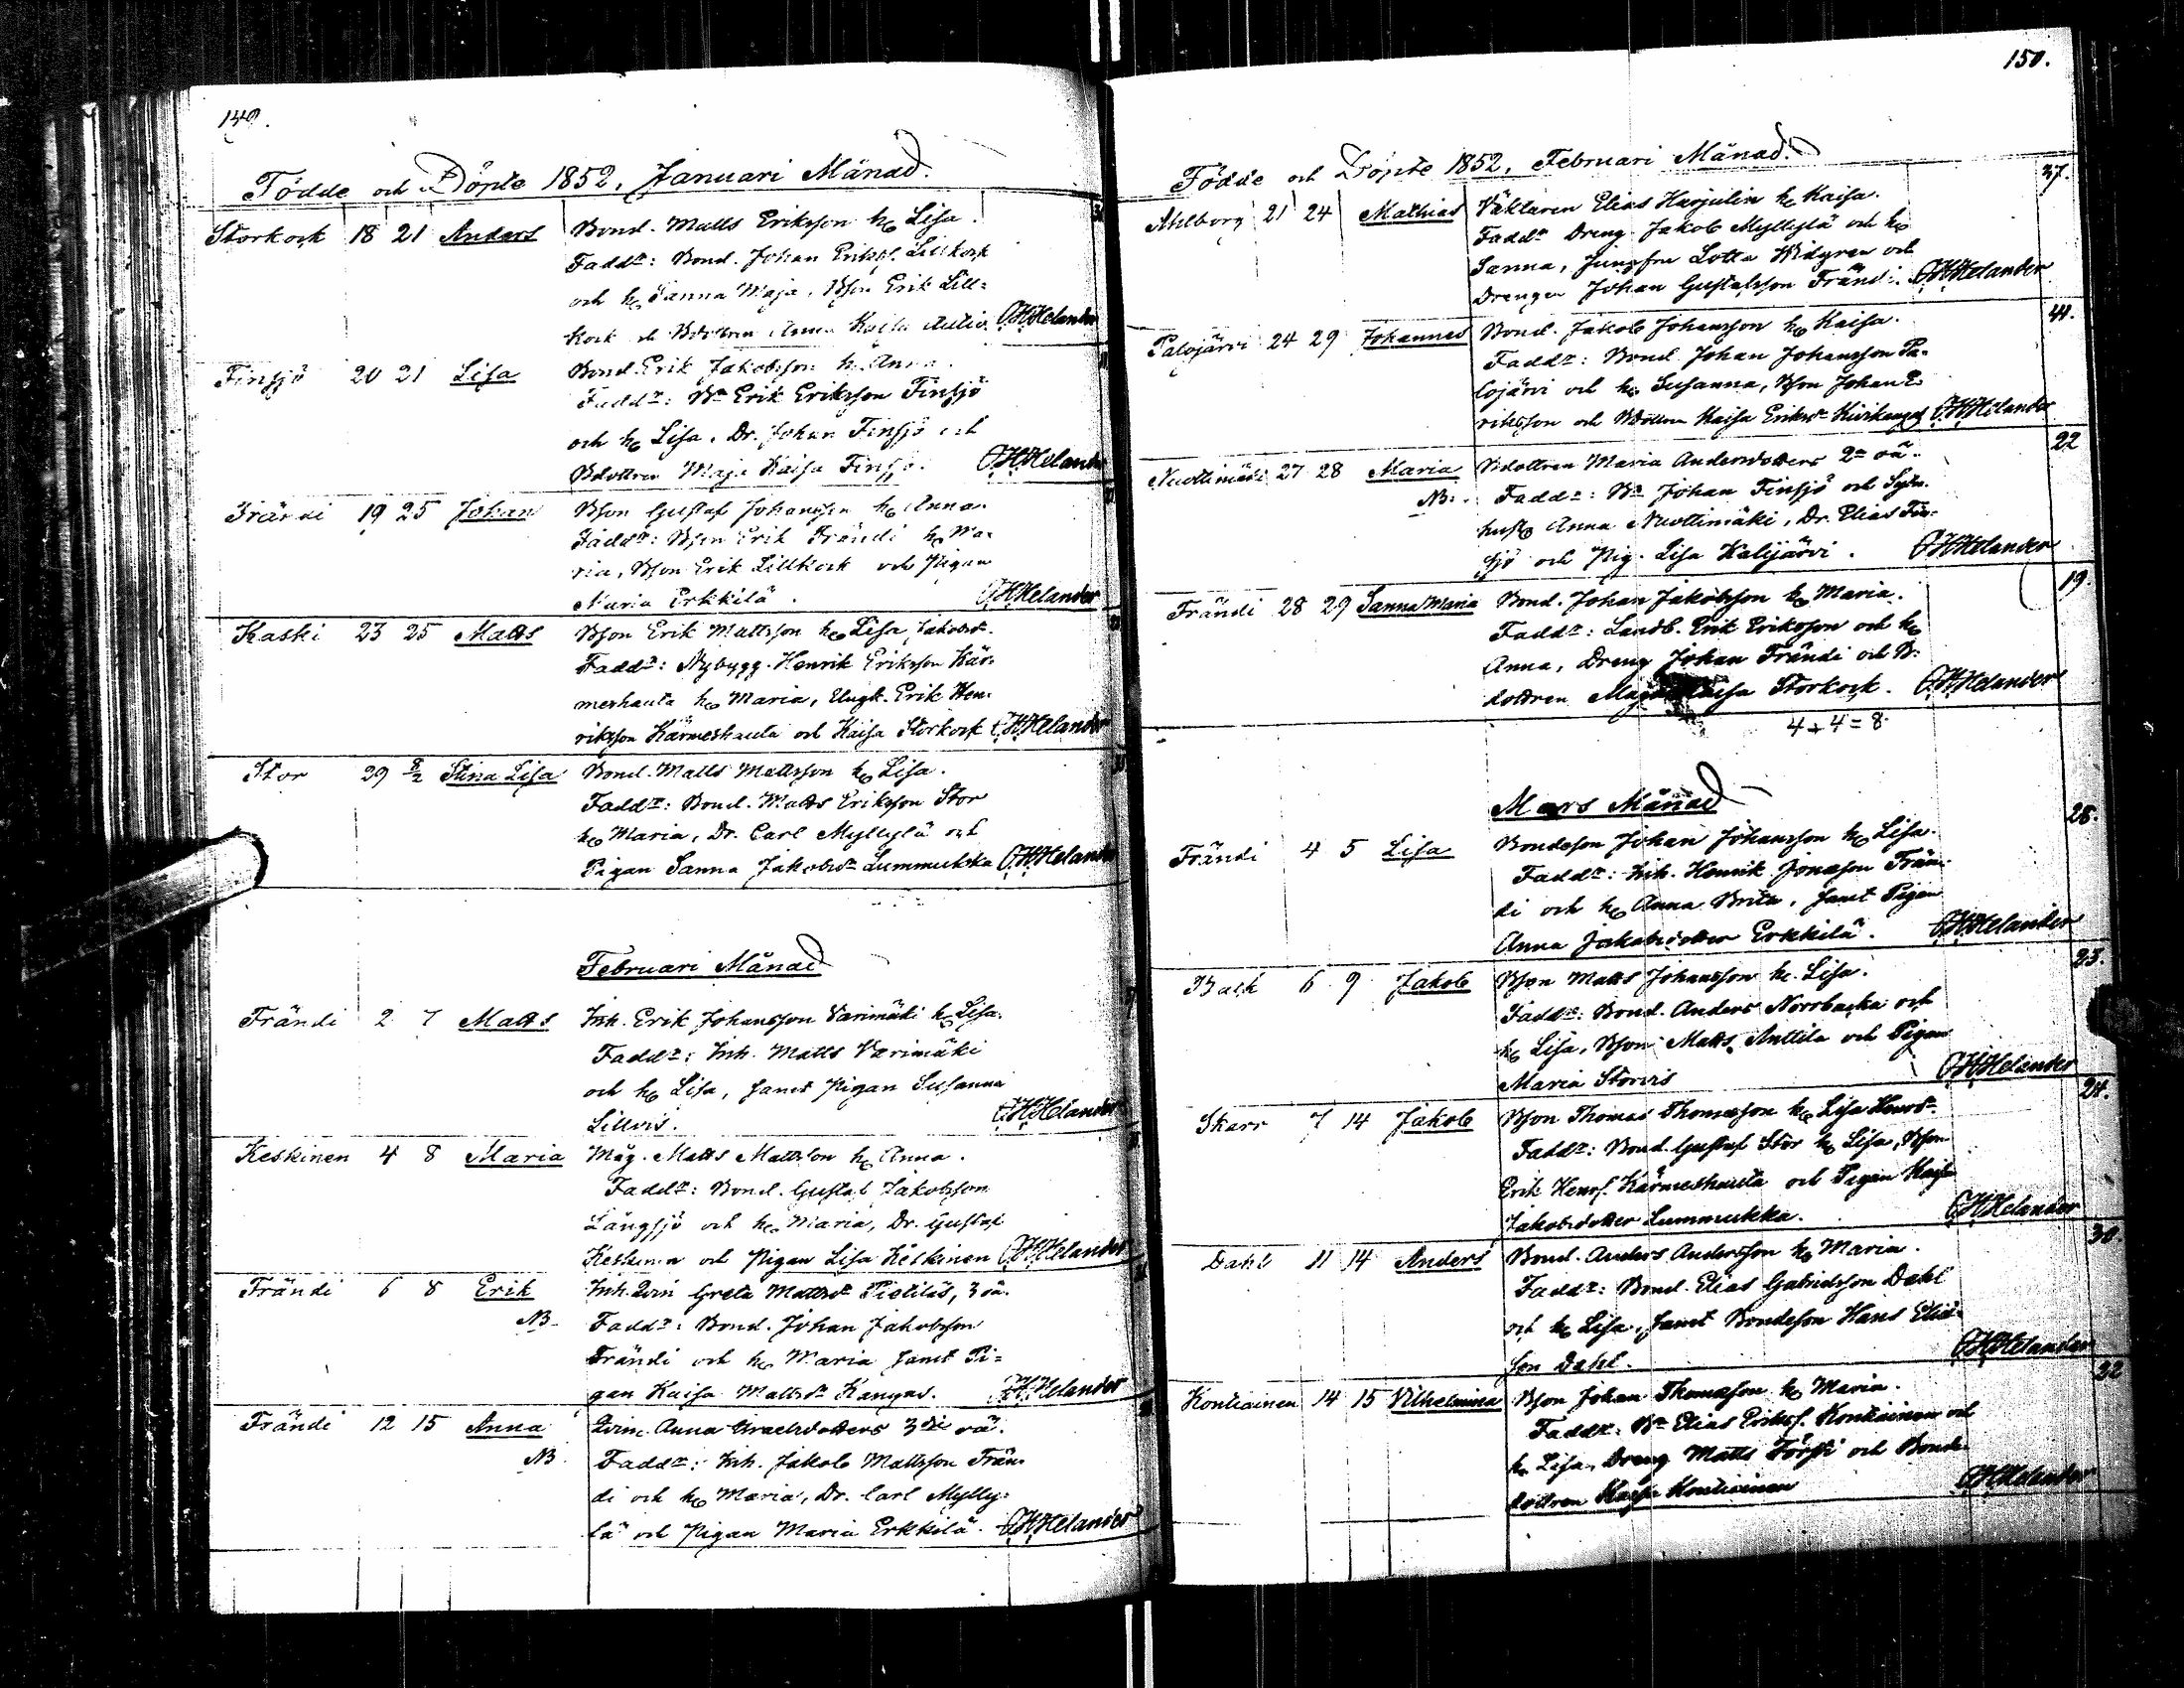 149.
Födde och Döpte 1852, Januari Månad.
Storkock 18 21 Anders Bond. Matts Eriksson h. Lisa.
Fadd^r: Bond. Johan Erikss. Lillkock
och h. Sanna Maja, Bson Erik Lill=
kock och Bdottren Anna Kaisa Autio. O.H.Helander
Finsjö 20 21 Lisa Bond. Erik Jakobsson h. Anna.
Fadd^r: B^n Erik Eriksson Finsjö
och h. Lisa, Dr. Johan Finsjö och
Bdottren Maja Kaisa Finsjö. O.H.Helander
Frändi 19 25 Johan Bson Gustaf Johansson h. Anna.
Fadd^r: Bson Erik Frändi h. Ma-
ria, Bson Erik Lillkock och Pigan
Maria Erkkilä. O.H.Helander
Kaski 23 25 Matts Bson Erik Mattsson h. Lisa Jakobsd^r.
Fadd^r: Nybygg. Henrik Eriksson Kär-
meshauta h. Maria, Ungk. Erik Hen-
riksson Kärmeshauta och Kaisa Storkock O.H.Helander
Stor 29 8/2 Stina Lisa Bond. Matts Mattsson h. Lisa.
Fadd^r: Bond. Matts Eriksson Stor
h. Maria, Dr. Carl Myllylä och
Pigan Sanna Jakobsd^r Lummukka O.H.Helander
Februari Månad
Frändi 2 7 Matts Inh. Erik Johansson Varimäki h. Lisa.
Fadd^r: Inh. Matts Varimäki
och h. Lisa, samt Pigan Susanna
Lillvis. O.H.Helander
Keskinen 4 8 Maria Måg. Matts Mattsson h. Anna.
Fadd^r: Bond. Gustaf Jakobsson
Långsjö och h. Maria, Dr. Gustaf
Keskinen och Pigan Lisa Keskinen O.H.Helander
Frändi 6 8 Erik Inh. Qvin Greta Mattsd^r Pistiläs, 3 oä.
NB. Fadd^r: Bond. Johan Jakobsson
Frändi och h. Maria samt Pi=
gan Kaisa Mattsd^r Kangas. O.H.Helander
Frändi 12 15 Anna Qvin. Anna Israelsdotters 3^dje oä.
NB. Fadd^r: Inh. Jakob Mattsson Frän-
di och h. Maria, Dr. Carl Mylly-
lä och Pigan Maria Erkkilä. O.H.Helander
150.
Födde och Döpte 1852, Februari Månad.
Ahlborg 21 24 Mathias Väktaren Elias Harjulin h. Kaisa. 37.
Fadd^r Dreng. Jakob Myllylä och h.
Sanna, Jungfru Lotta Widgren och
Drengen Johan Gustafsson Frändi. O.H.Helander
Palojärvi 24 29 Johannes Bond. Jakob Johansson h. Kaisa. 41.
Fadd^r: Bond. Johan Johansson Pa-
lojärvi och h. Susanna, Bson Johan E-
riksson och Bdottren Kaisa Eriksd^r Kivikangas O.H.Helander
Nuottimäki 27 28 Maria Bdottren Maria Andersdotters 2^a oä. 22
NB. Fadd^r: B^n Johan Finsjö och Sytn.
hust. Anna Nuottimäki, Dr. Elias Fin-
sjö och Pig. Lisa Kalijärvi. O.H.Helander
Frändi 28 29 Sanna Maria Bond. Johan Jakobsson h. Maria. 19.
Fadd^r: Landb. Erik Eriksson och h.
Anna, Dreng Johan Frändi och B-
dottren Maja Kaisa Storkock. O.H.Helander
4+4=8.
Mars Månad
Frändi 4 5 Lisa Bondeson Johan Johansson h. Lisa. 28.
Fadd^r: Inh. Henrik Jonasson Frän-
di och h. Anna Brita, samt Pigan
Anna Jakobsdotter Erkkilä. O.H.Helander
Back 6 9 Jakob Bson Matts Johansson h. Lisa. 23.
Fadd^r: Bond. Anders Norrbacka och
h. Lisa, Bson Matts Anttila och Pigan
Maria Storvis O.H.Helander
Skarr 7 14 Jakob Bson Thomas Thomasson h. Lisa Henrsd^r. 24.
Fadd^r: Bond. Gustaf Stor h. Lisa, Bson
Erik Henrs. Kärmeshauta och Pigan Kaisa
Jakobsdotter Lummukka. O.H.Helander
Dahl 11 14 Anders Bond. Anders Andersson h. Maria. 30.
Fadd^r: Bond. Elias Gabrielsson Dahl
och h. Lisa, samt Bondeson Hans Elias-
son Dahl. O.H.Helander
Kontiainen 14 15 Vilhelmina Bson Johan Thomasson h. Maria. 22
Fadd^r: B^n Elias Erikss. Kontiainen och
h. Lisa, Dreng Matts Förssi och Bonde-
dottren Kaisa Kontiainen O.H.Helander